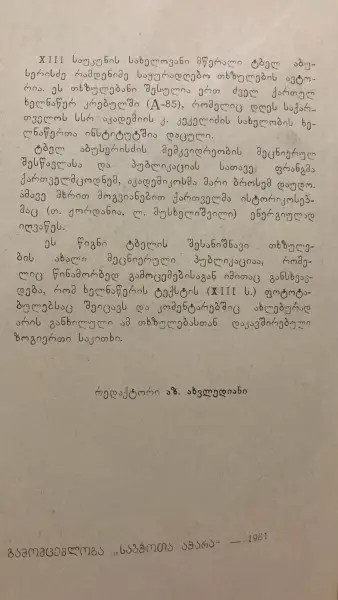 XIII საუკუნის სახელოვანი მწერალი ტბელ აბუ-
სერისძე რამდენიმე საყურადღებო თხზულების ავტო-
რია. ეს თხზულებანი შესულია ერთ ძველ ქართულ
ხელნაწერ კრებულში (A-85), რომელიც დღეს საქარ-
თველოს სსრ აკადემიის კ. კეკელიძის სახელობის ხე-
ლნაწერთა ინსტიტუტშია დაცული.
ტბელ აბუსერისძის მემკვიდრეობის მეცნიერულ
შესწავლასა და პუბლიკაციას სათავე ფრანგმა
ქართველმცოდნემ, აკადემიკოსმა მარი ბროსემ დაუდო.
ამავე მხრით მოგვიანებით ქართველმა ისტორიკოსებ-
მაც (თ. ჟორდანია, ლ. მუსხელიშვილი) ენერგიულად
იღვაწეს.
ეს წიგნი ტბელის შესანიშნავი თხზულე-
ბის ახალი მეცნიერული პუბლიკაციაა, რომე-
ლიც წინამორბედ გამოცემებისაგან იმითაც განსხვავ-
დება, რომ ხელნაწერის ტექსტის (XIII ს.) ფოტოტა-
ბულებსაც შეიცავს და კომენტარებშიც ახლებურად
არის განხილული ამ თხზულებასთან დაკავშირებული
ზოგიერთი საკითხი.
რედაქტორი აზ. ახვლედიანი
გამომცემლობა „საბჭოთა აჭარა“ — 1981